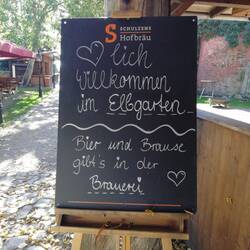 S SCHULZENS
Hofbräu
♡lich
Willkommen
im Elbgarten
Bier und Brause
gibt's in der
Brauerei ♡